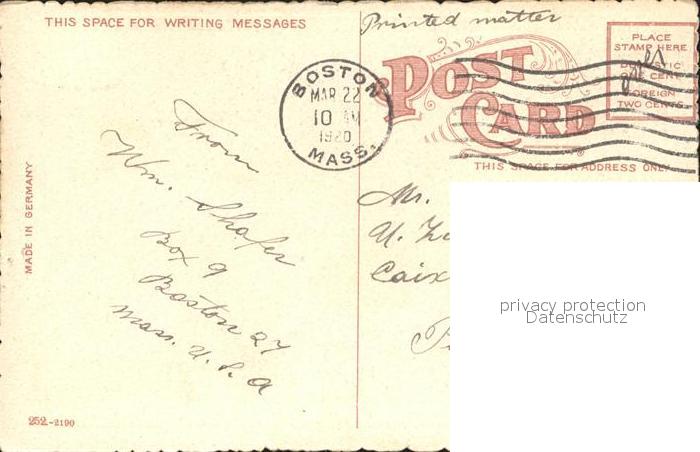 THIS SPACE FOR WRITING MESSAGES
Printed matter
POST CARD
PLACE
STAMP HERE
DOMESTIC
ONE CENT
FOREIGN
TWO CENTS
BOSTON
MAR 22
10 AM
1920
MASS.
THIS SPACE FOR ADDRESS ONLY
From
Wm. Shafer
Box 9
Boston 27
Mass. U.S.A
Mr.
Caix
MADE IN GERMANY
252-2190
privacy protection
Datenschutz